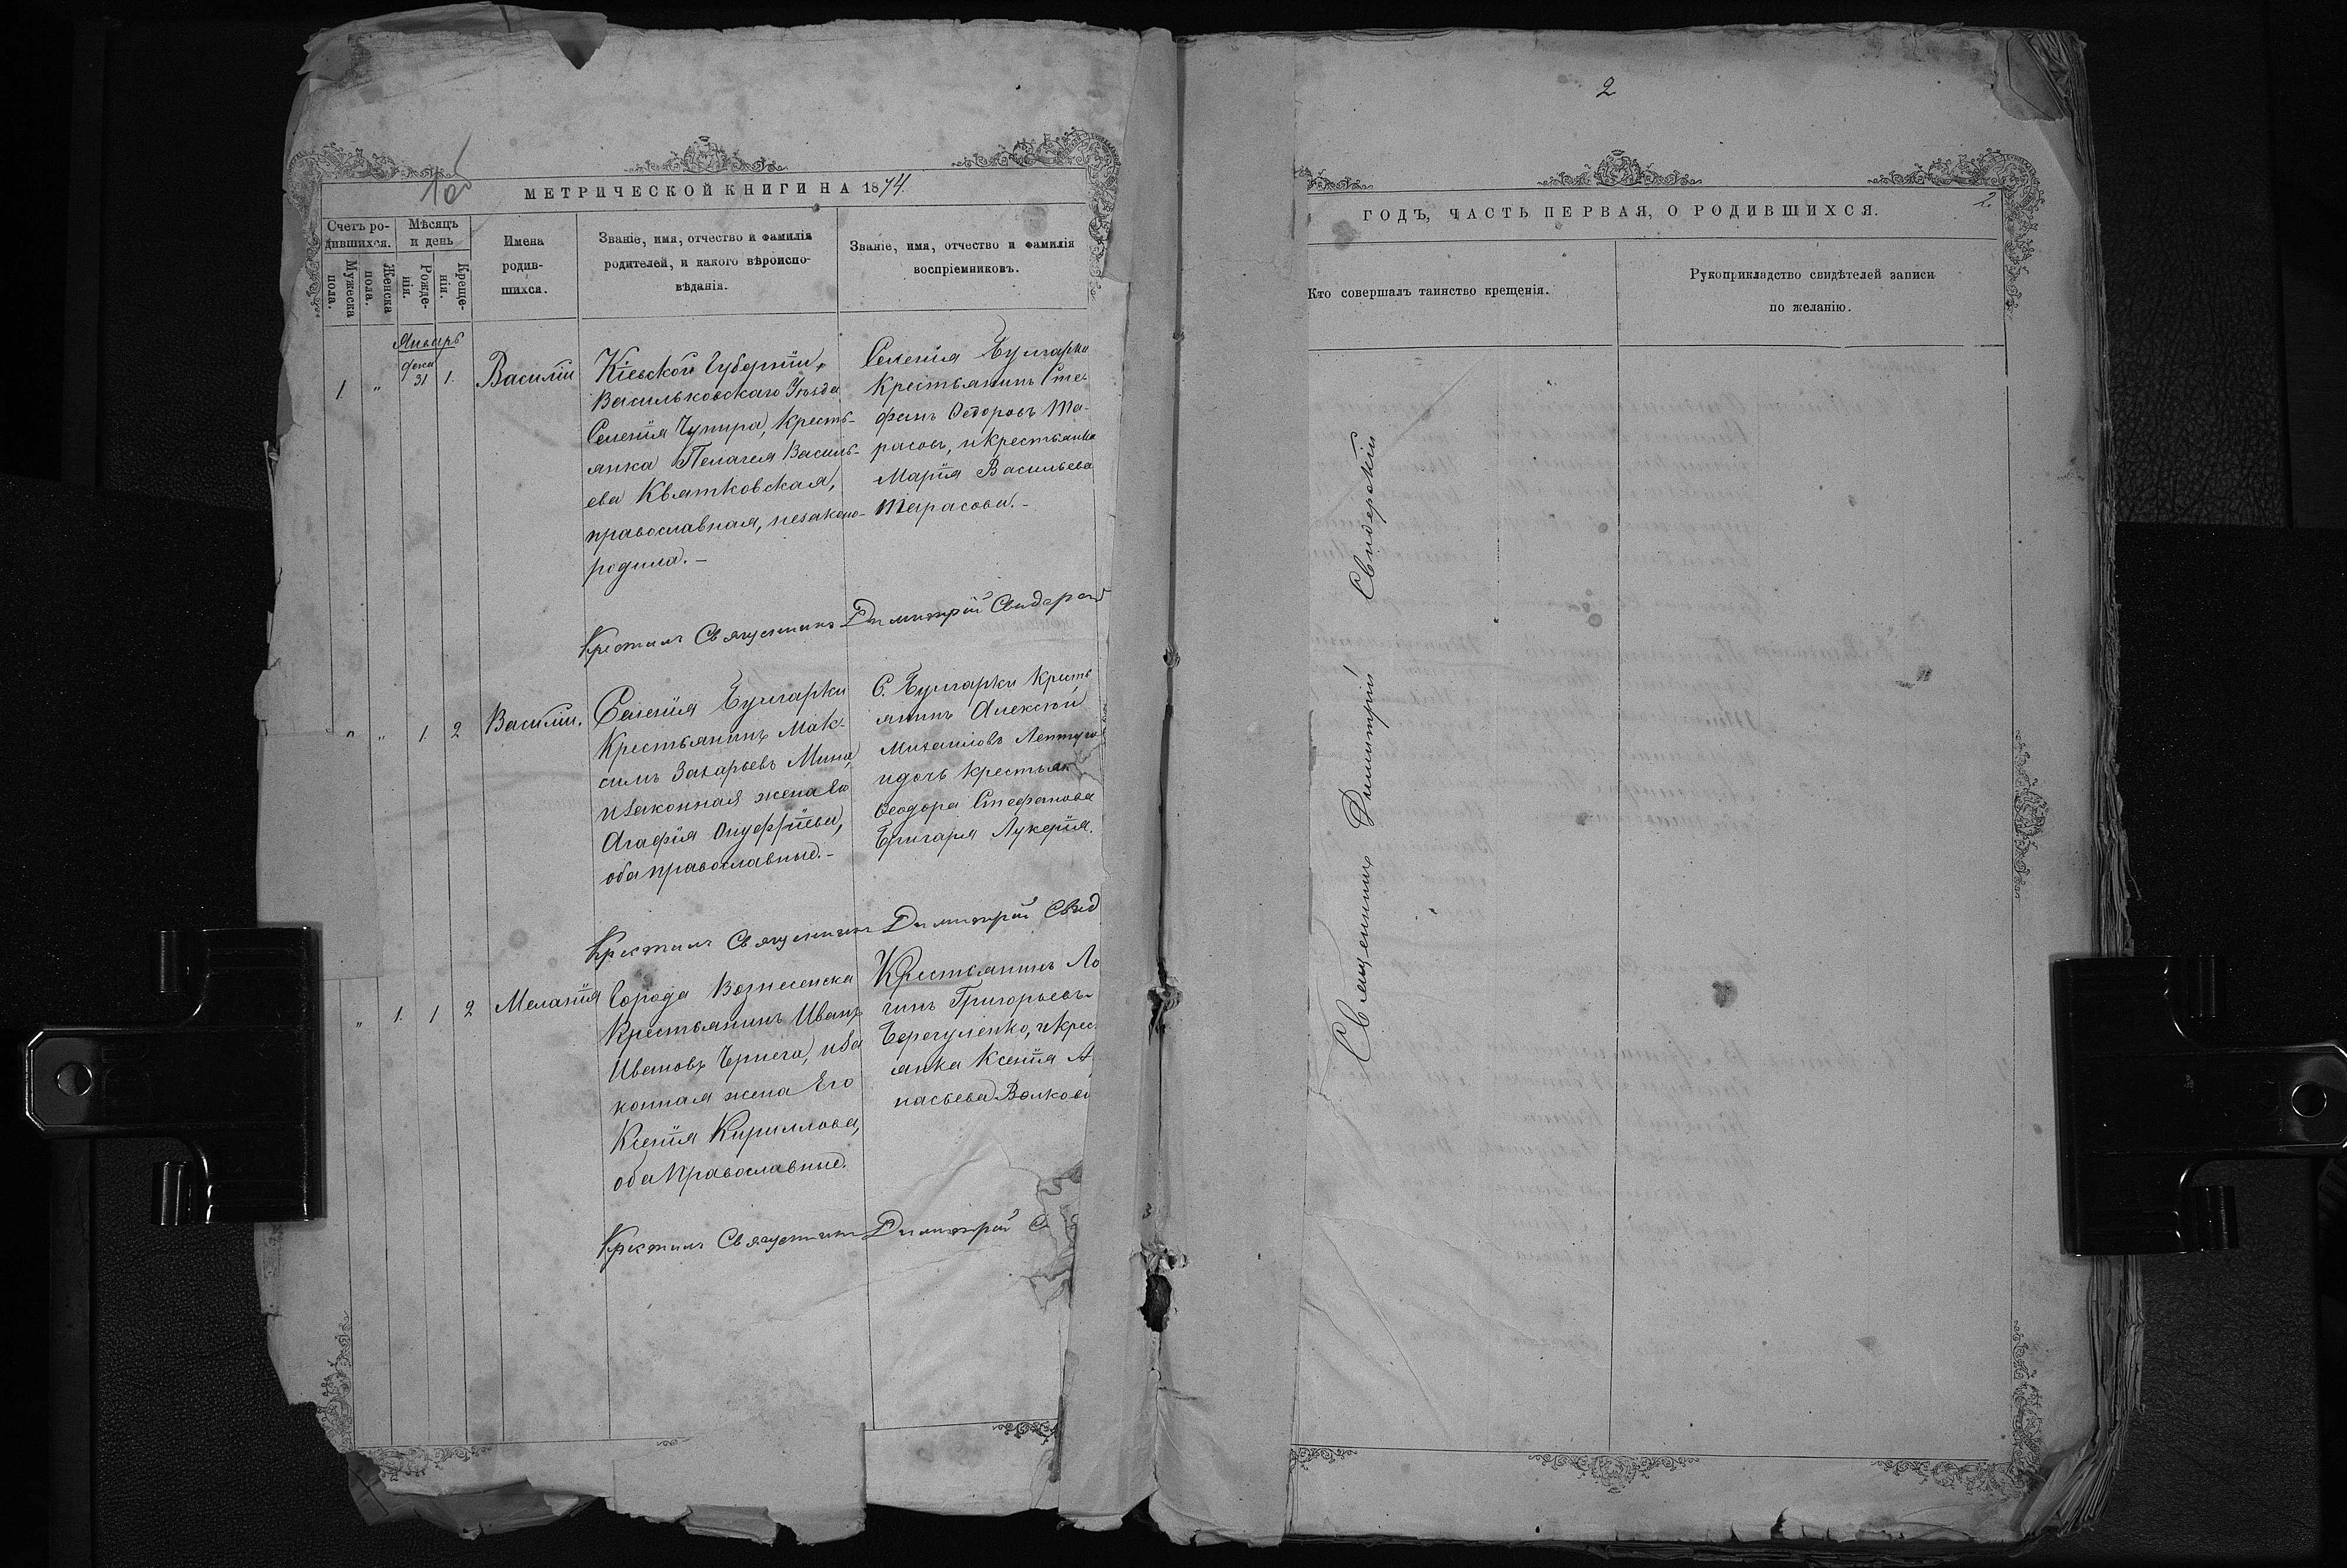 1об
МЕТРИЧЕСКОЙ КНИГИ НА 1874.
Счетъ ро-
дившихся.
Мужеска
пола.
Женска
пола.
Мѣсяцъ
и день
Рожде-
нія.
Креще-
нія.
Имена
родив-
шихся.
Званіе, имя, отчество и фамилія
родителей, и какого вѣроиспо-
вѣданія.
Званіе, имя, отчество и фамилія
воспріемниковъ.
Январь
1 " 31 1. Василій
Кіевской Губерніи,
Васильковскаго Уѣзда
Селенія Чупира, кресть-
янка Пелагея Василь-
ева Квятковская,
православная, незаконо-
родила.-
Селенія Булгарки
Крестьянинъ Сте-
фанъ Ѳедоровъ Та-
расовъ, и крестьянка
Марія Васильева
Тарасова.-
Крестилъ Священникъ Димитрій Свидерск
" 1. 2 Василій.
Селенія Булгарки
Крестьянинъ Мак-
симъ Захарьевъ Мина,
и законная жена его
Агафія Онуфріева,
оба православные.-
С. Булгарки Кресть
янинъ Алексѣй
Михаиловъ
и дочь крестьян
Ѳеодора Стефанова
Лукерія.
Крестилъ Священникъ Димитрій Свид
" 1. 1 2 Меланія
Города Вознесенска
Крестьянинъ Иванъ
Ивановъ Чернега, и за
конная жена Его
Ксенія Кириллова,
оба Православные.
Крестьянинъ Ло
гинъ Григорьевъ
Берегуленко, и крес
янка Ксенія А
насьева Волкова
Крестилъ Священникъ Димитрій С
2
2.
ГОДЪ, ЧАСТЬ ПЕРВАЯ, О РОДИВШИХСЯ.
Кто совершалъ таинство крещенія.
Рукоприкладство свидѣтелей записи
по желанію.
Священникъ Димитрій Свидерскій